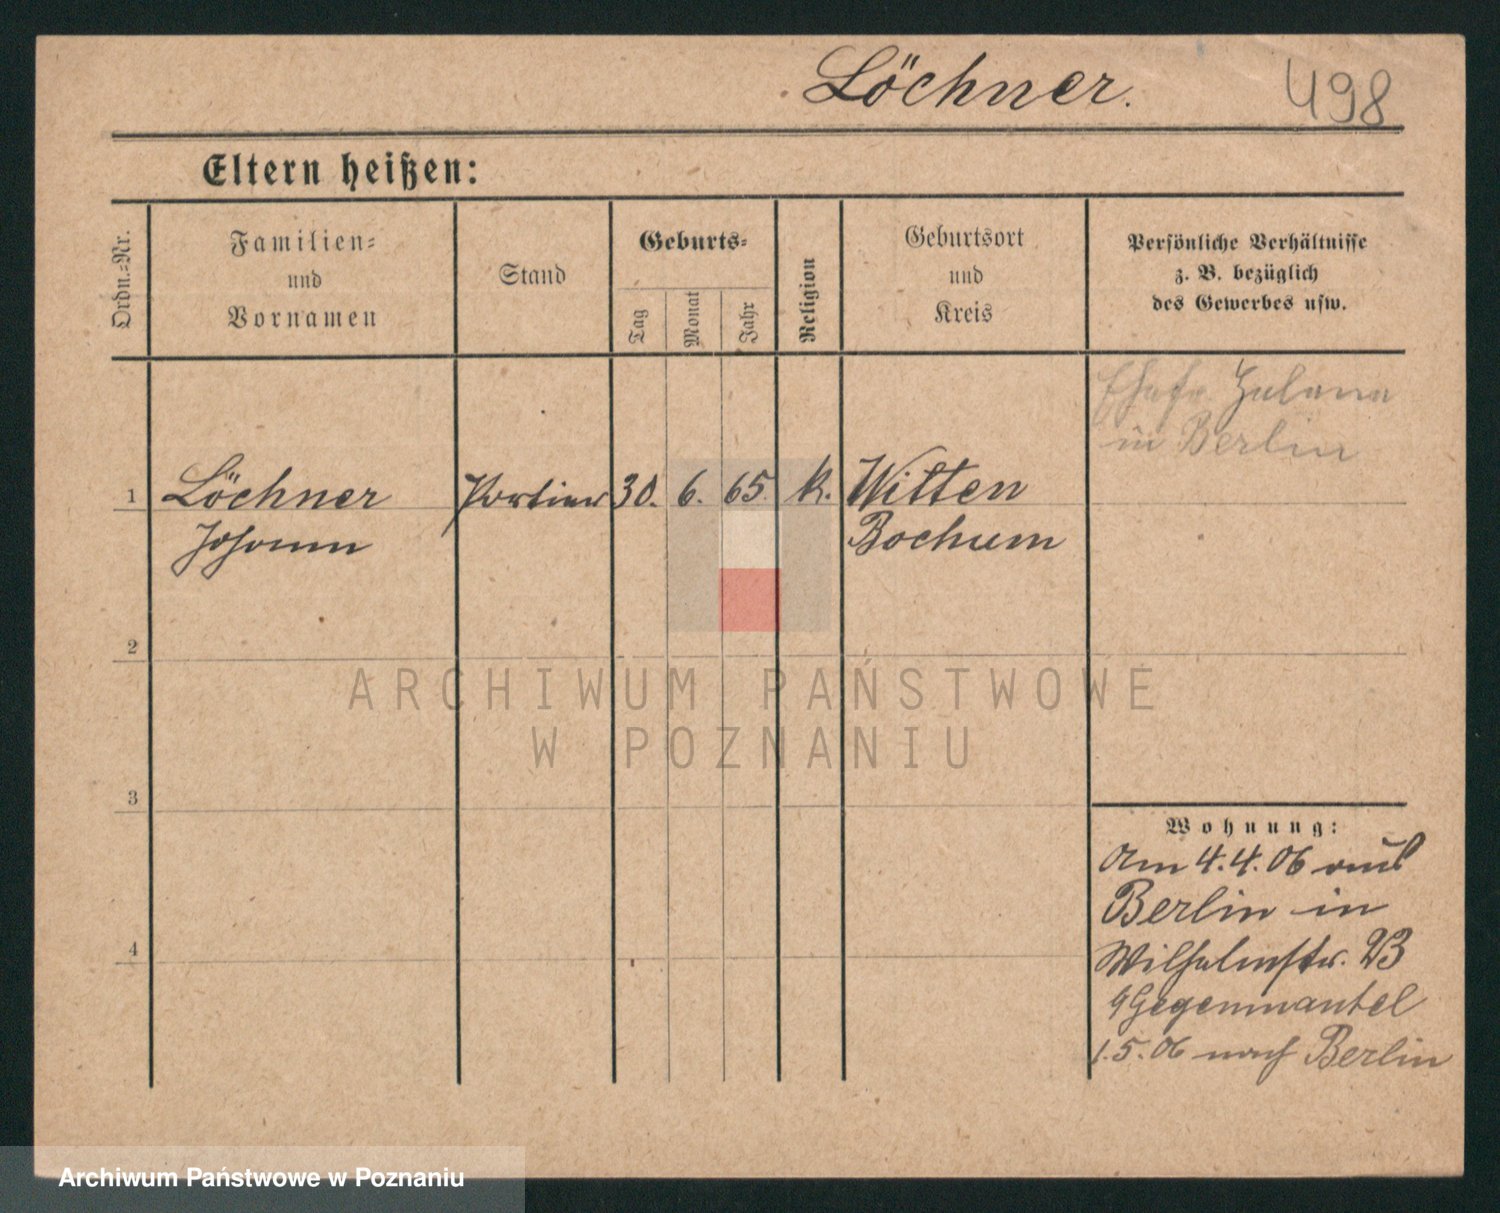 Löchner.
498
Eltern heißen:
Ordn.-Nr.
Familien-
und
Vornamen
Stand
Geburts-
Tag
Monat
Jahr
Religion
Geburtsort
und
Kreis
Persönliche Verhältnisse
z. B. bezüglich
des Gewerbes usw.
Ehefr. Helene
in Berlin
1 Löchner Portier 30. 6. 65 k. Witten
Johann Bochum
2
3
4
ARCHIWUM PAŃSTWOWE
W POZNANIU
Wohnung:
Am 4.4.06 aus
Berlin in
Wilhelmstr. 23
Gegenmantel
1.5.06 nach Berlin
Archiwum Państwowe w Poznaniu